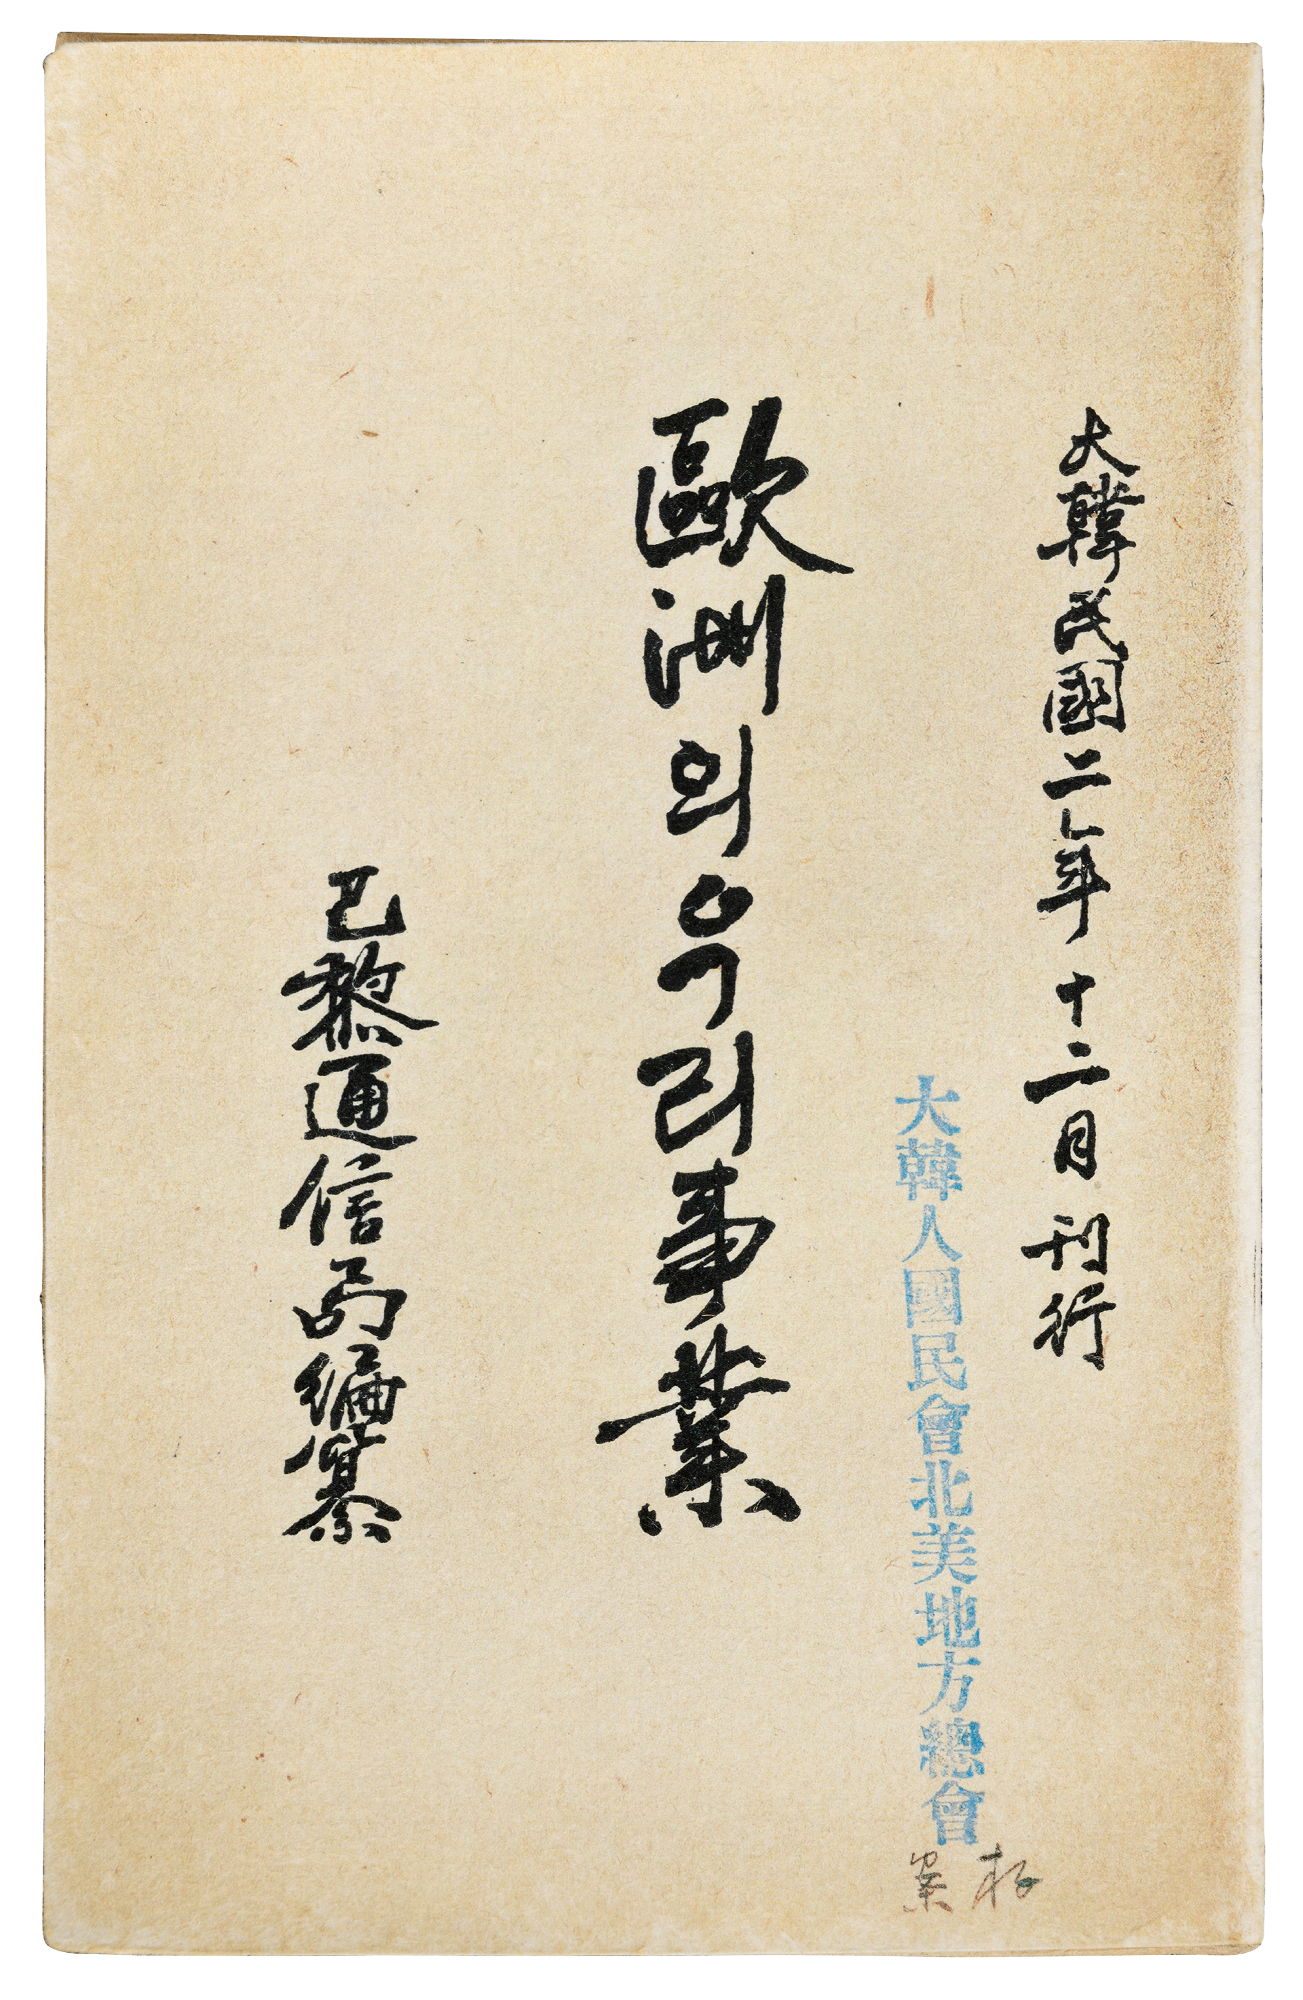 大韓民國二年十二月刊行
大韓人國民會北美地方總會
存案
歐洲의우리事業
巴黎通信局編纂